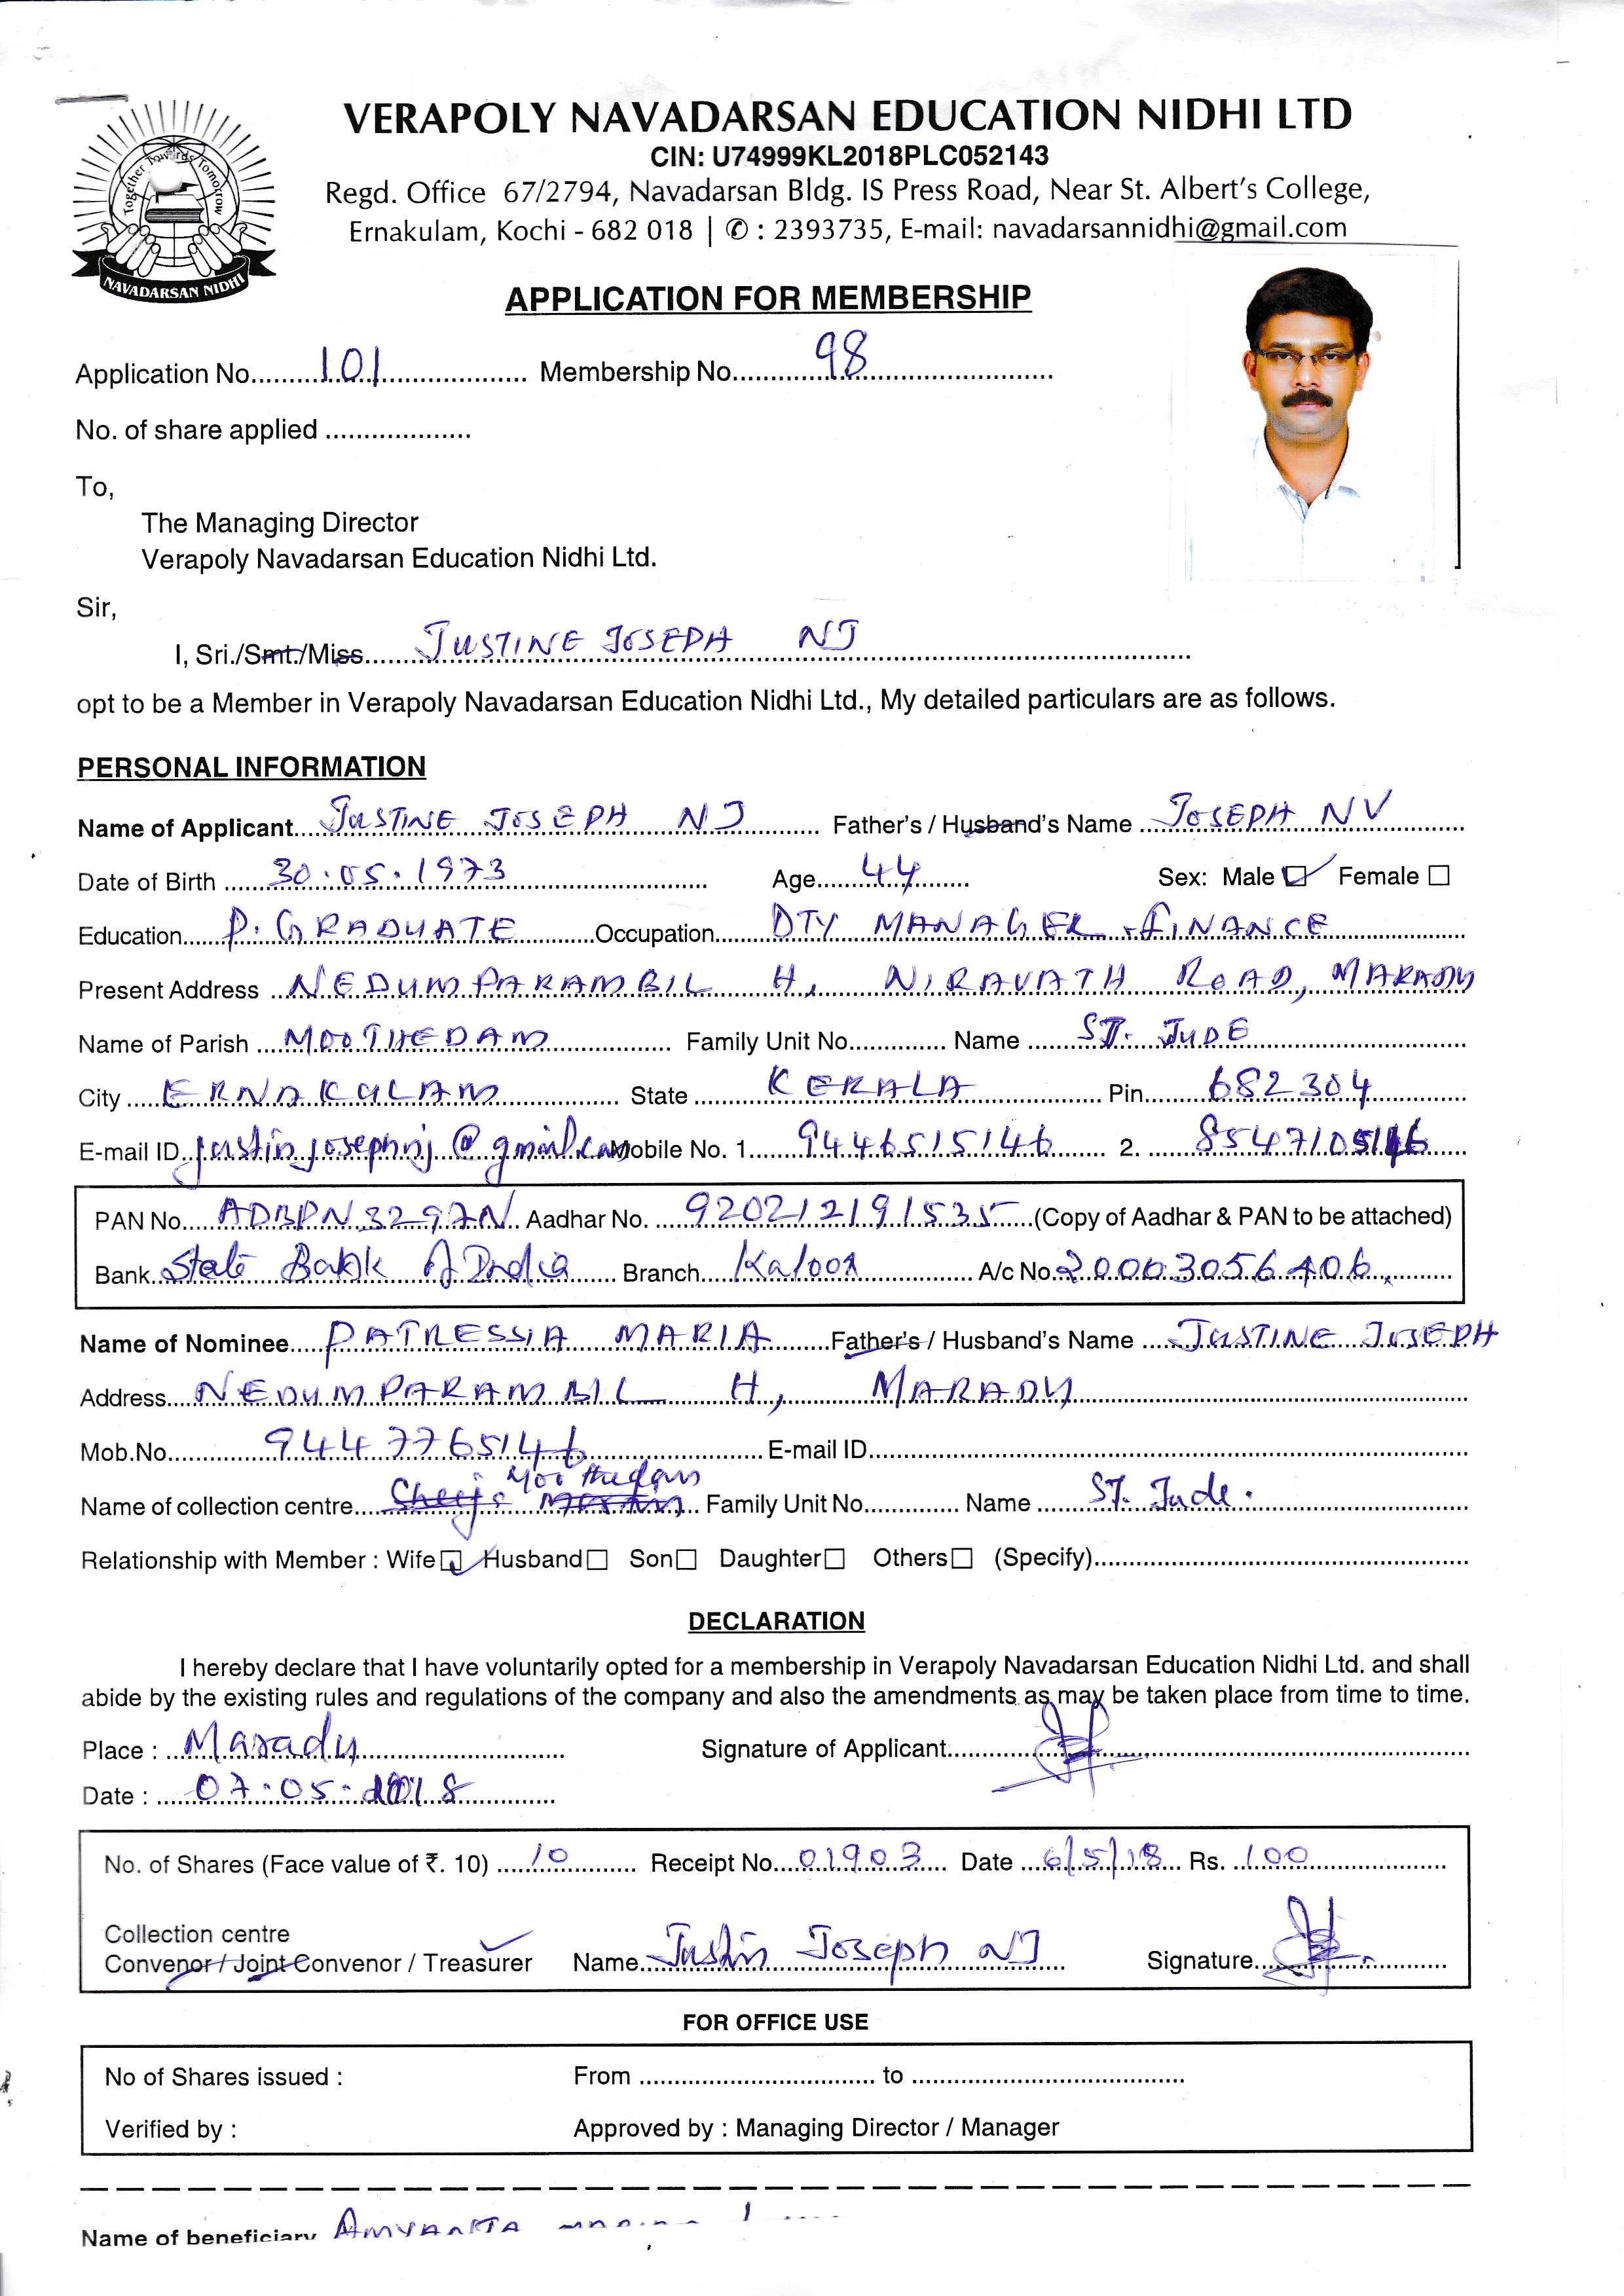 VERAPOLY NAVADARSAN EDUCATION NIDHI LTD
CIN: U74999KL2018PLC052143
Regd. Office 67/2794, Navadarsan Bldg. IS Press Road, Near St. Albert's College,
Ernakulam, Kochi - 682 018 | ✆ : 2393735, E-mail: navadarsannidhi@gmail.com
Together Towards Tomorrow
NAVADARSAN NIDHI
APPLICATION FOR MEMBERSHIP
Application No. 101 Membership No. 98
No. of share applied
To,
The Managing Director
Verapoly Navadarsan Education Nidhi Ltd.
Sir,
I, Sri./Smt./Miss. JUSTINE JOSEPH NJ
opt to be a Member in Verapoly Navadarsan Education Nidhi Ltd., My detailed particulars are as follows.
PERSONAL INFORMATION
Name of Applicant JUSTINE JOSEPH NJ Father's / Husband's Name JOSEPH NV
Date of Birth 30.05.1973 Age 44 Sex: Male Female
Education P. GRADUATE Occupation DTY MANAGER - FINANCE
Present Address NEDUMPARAMBIL H, NIRAVATH ROAD, MARADU
Name of Parish MOOTHEDAM Family Unit No. Name ST. JUDE
City ERNAKULAM State KERALA Pin 682304
E-mail ID justinjosephnj@gmail.com Mobile No. 1. 9446515146 2. 8547105146
PAN No. ADBPN3297N Aadhar No. 920212191535 (Copy of Aadhar & PAN to be attached)
Bank State Bank of India Branch Kaloor A/c No. 20003056406
Name of Nominee PATRESSIA MARIA Father's / Husband's Name JUSTINE JOSEPH
Address NEDUMPARAMBIL H, MARADU
Mob.No. 94477765146 E-mail ID
Name of collection centre Family Unit No. Name ST. Jude.
Relationship with Member : Wife Husband Son Daughter Others (Specify)
DECLARATION
I hereby declare that I have voluntarily opted for a membership in Verapoly Navadarsan Education Nidhi Ltd. and shall
abide by the existing rules and regulations of the company and also the amendments as may be taken place from time to time.
Place : Maradu Signature of Applicant
Date : 07.05.2018
No. of Shares (Face value of ₹. 10) 10 Receipt No. 01903 Date 6/5/18 Rs. 100
Collection centre
Convenor / Joint Convenor / Treasurer Name Justin Joseph NJ Signature
FOR OFFICE USE
No of Shares issued : From to
Verified by : Approved by : Managing Director / Manager
Name of beneficiary